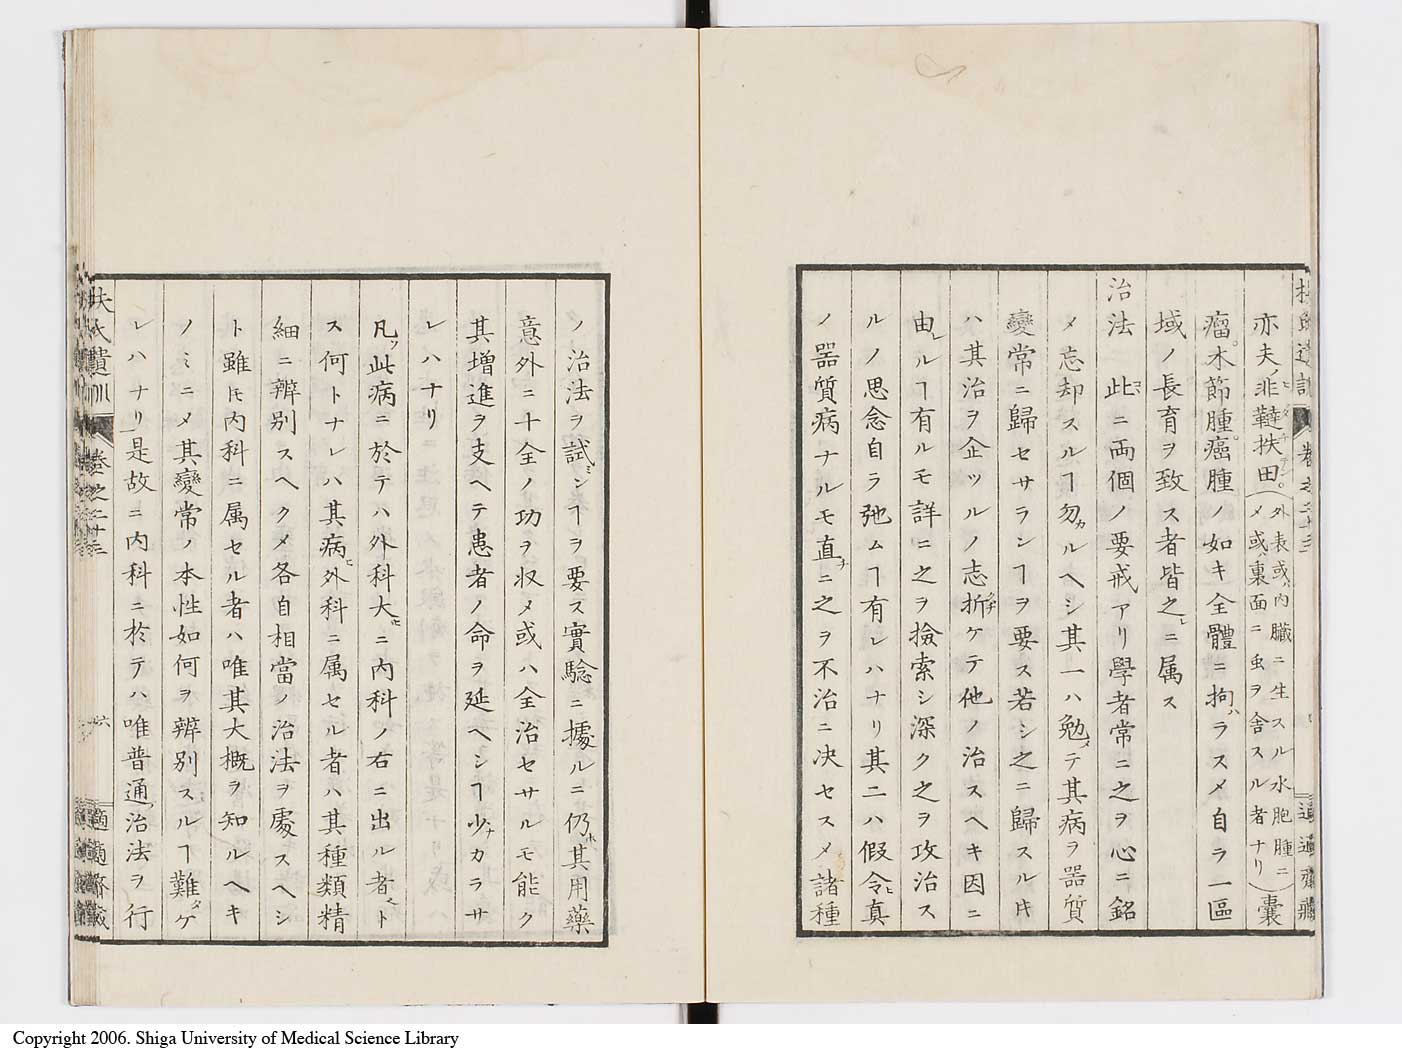 亦夫ノ非韃扶田(外表或ハ内臓ニ生スル水胞腫ニ
メ或ハ裏面ニ虫ヲ舎スル者ナリ)嚢
瘤木節腫癌腫ノ如キ全體ニ拘ハラスメ自ラ一區
域ノ長育ヲ致ス者皆之ニ属ス
治法 此ニ両個ノ要戒アリ學者常ニ之ヲ心ニ銘
メ忘却スルヿ勿カルヘシ其一ハ勉メテ其病ヲ器質
變常ニ歸セサランヿヲ要ス若シ之ニ歸スル𪜈
ハ其治ヲ企ツルノ志折ケテ他ノ治スヘキ因ニ
由ルヿ有ルモ詳ニ之ヲ撿索シ深ク之ヲ攻治ス
ルノ思念自ラ弛ムヿ有レハナリ其二ハ假令ヒ真
ノ器質病ナルモ直チニ之ヲ不治ニ决セスメ諸種
ノ治法ヲ試ミンヿヲ要ス實驗ニ據ルニ仍ホ其用藥
意外ニ十全ノ功ヲ収メ或ハ全治セサルモ能ク
其増進ヲ支ヘテ患者ノ命ヲ延ヘシヿ少ナカラサ
レハナリ
凡ソ此病ニ於テハ外科大ニ内科ノ右ニ出ル者ト
ス何トナレハ其病ヒ外科ニ属セル者ハ其種類精
細ニ辨別スヘクメ各自相當ノ治法ヲ處スヘシ
ト雖𪜈内科ニ属セル者ハ唯其大概ヲ知ルヘキ
ノミニメ其變常ノ本性如何ヲ辨別スルヿ難ケ
レハナリ是故ニ内科ニ於テハ唯普通ノ治法ヲ行
扶氏遺訓 巻之二十三 六 適適齋藏